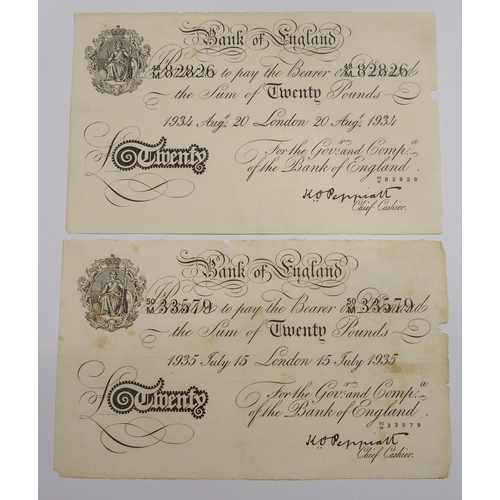 Bank of England
48/M 82826 to pay the Bearer on Demand 48/M 82826
the Sum of Twenty Pounds
1934 Augst. 20 London 20 Augst. 1934
For the Govr. and Compa.
of the Bank of England.
Twenty
48/M 82826
K.O. Peppiatt
Chief Cashier.
Bank of England
50/M 33579 to pay the Bearer on Demand 50/M 33579
the Sum of Twenty Pounds
1935 July 15 London 15 July 1935
For the Govr. and Compa.
of the Bank of England.
Twenty
50/M 33579
K.O. Peppiatt
Chief Cashier.